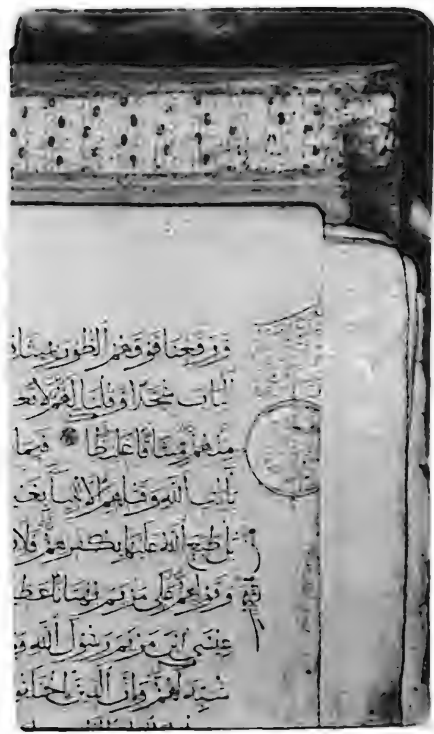 وَرَفَعْنَا فَوْقَهُمُ الطُّورَ بِمِيثَاقِ
الْبَابَ سُجَّدًا وَقُلْنَا لَهُمْ لَا تَعْدُ
مِنْهُمْ مِيثَاقًا غَلِيظًا فَبِمَا
بِآيَاتِ اللَّهِ وَقَتْلِهِمُ الْأَنْبِيَاءَ بِغَيْرِ
بَلْ طَبَعَ اللَّهُ عَلَيْهَا بِكُفْرِهِمْ فَلَا
وَقَوْلِهِمْ عَلَى مَرْيَمَ بُهْتَانًا عَظِي
عِيسَى ابْنَ مَرْيَمَ رَسُولَ اللَّهِ وَمَ
شُبِّهَ لَهُمْ وَإِنَّ الَّذِينَ اخْتَلَفُو